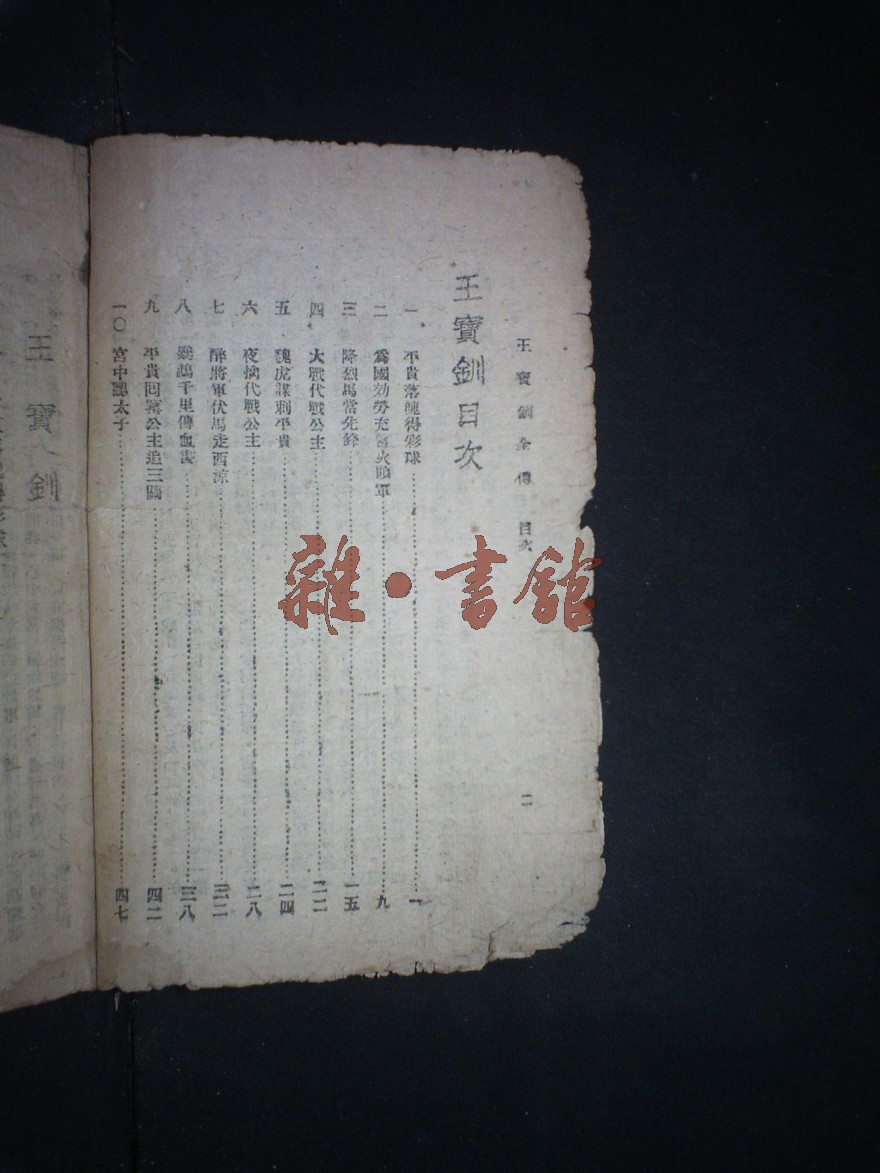 王寶釧全傳 目次
二
王寶釧目次
一 平貴落魄得彩球 一
二 爲國効勞充當火頭軍 九
三 降烈馬當先鋒 一五
四 大戰代戰公主 二二
五 魏虎謀刺平貴 二四
六 夜擒代戰公主 二八
七 醉將軍伏馬走西涼 三二
八 鸚鵡千里傳血書 三八
九 平貴回窰公主追三關 四二
一〇 宮中認太子 四七
王寶釧
雜·書館